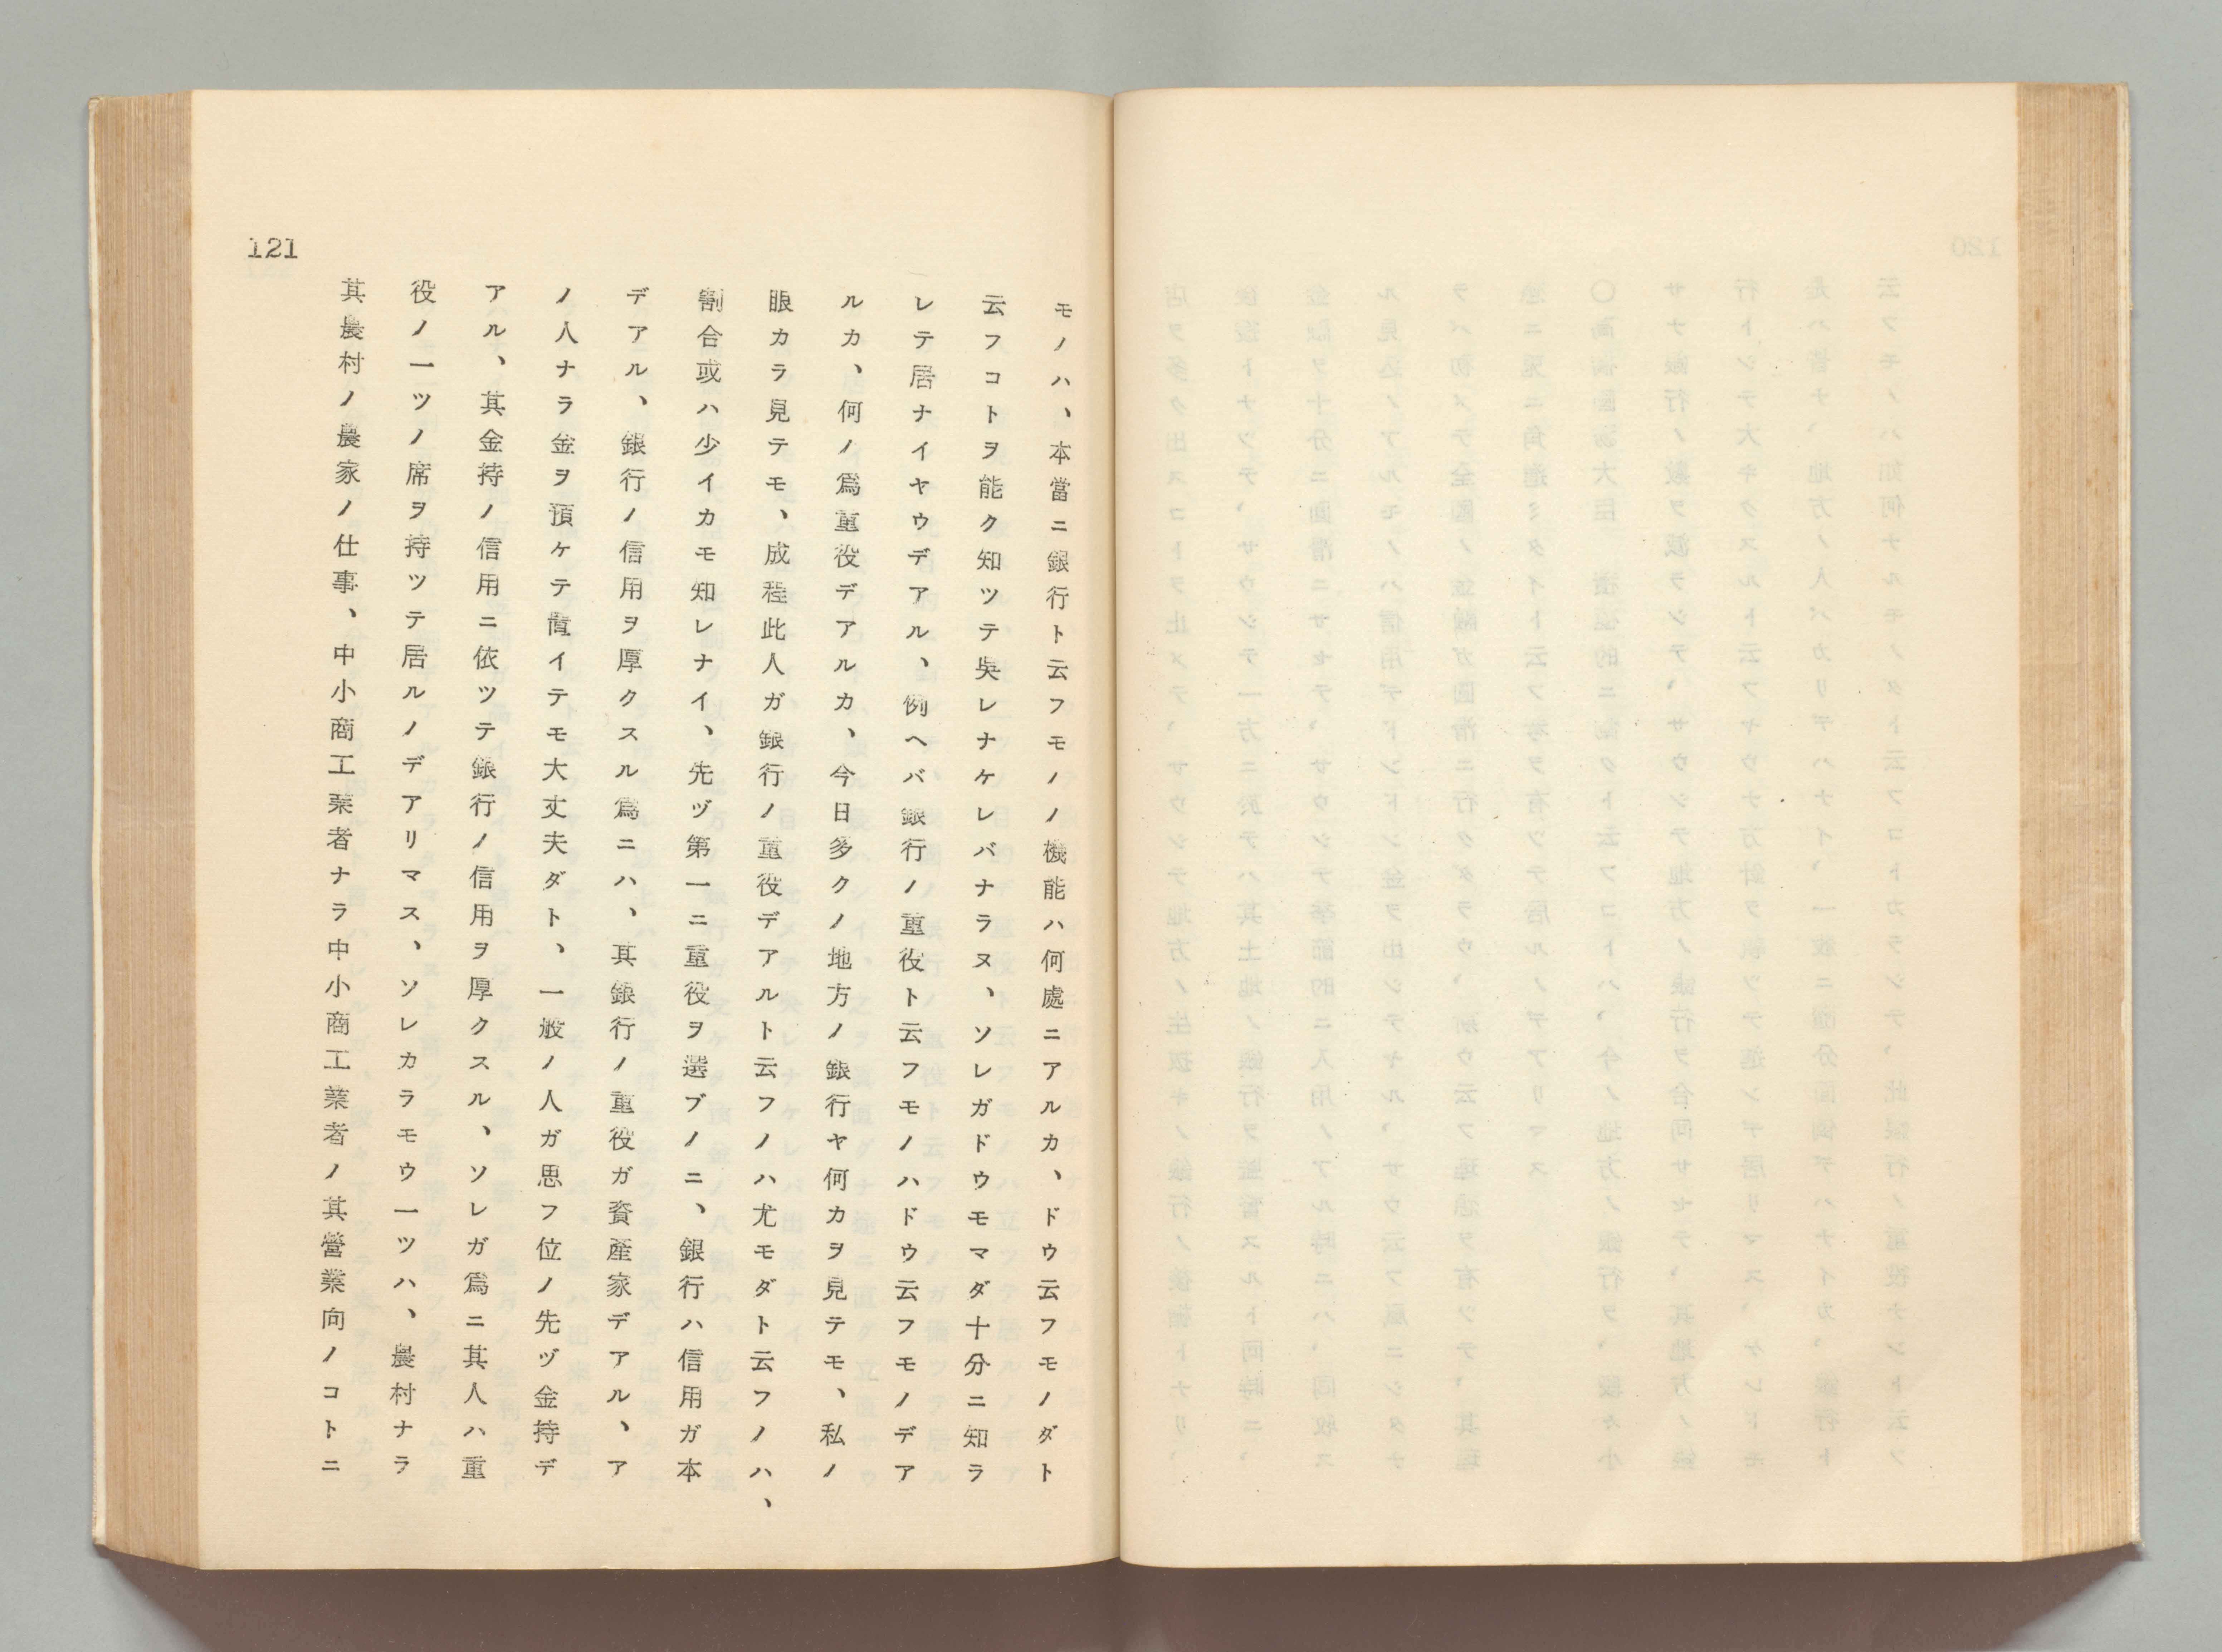 モノハ、本當ニ銀行ト云フモノノ機能ハ何處ニアルカ、ドウ云フモノダト
云フコトヲ能ク知ツテ吳レナケレバナラヌ、ソレガドウモマダ十分ニ知ラ
レテ居ナイヤウデアル、例ヘバ銀行ノ重役ト云フモノハドウ云フモノデア
ルカ、何ノ爲重役デアルカ、今日多クノ地方ノ銀行ヤ何カヲ見テモ、私ノ
眼カラ見テモ、成程此人ガ銀行ノ重役デアルト云フノハ尤モダト云フノハ、
割合或ハ少イカモ知レナイ、先ヅ第一ニ重役ヲ選ブノニ、銀行ハ信用ガ本
デアル、銀行ノ信用ヲ厚クスル爲ニハ、其銀行ノ重役ガ資產家デアル、ア
ノ人ナラ金ヲ預ケテ置イテモ大丈夫ダト、一般ノ人ガ思フ位ノ先ヅ金持デ
アル、其金持ノ信用ニ依ツテ銀行ノ信用ヲ厚クスル、ソレガ爲ニ其人ハ重
役ノ一ツノ席ヲ持ツテ居ルノデアリマス、ソレカラモウ一ツハ、農村ナラ
其農村ノ農家ノ仕事、中小商工業者ナラ中小商工業者ノ其營業向ノコトニ
121